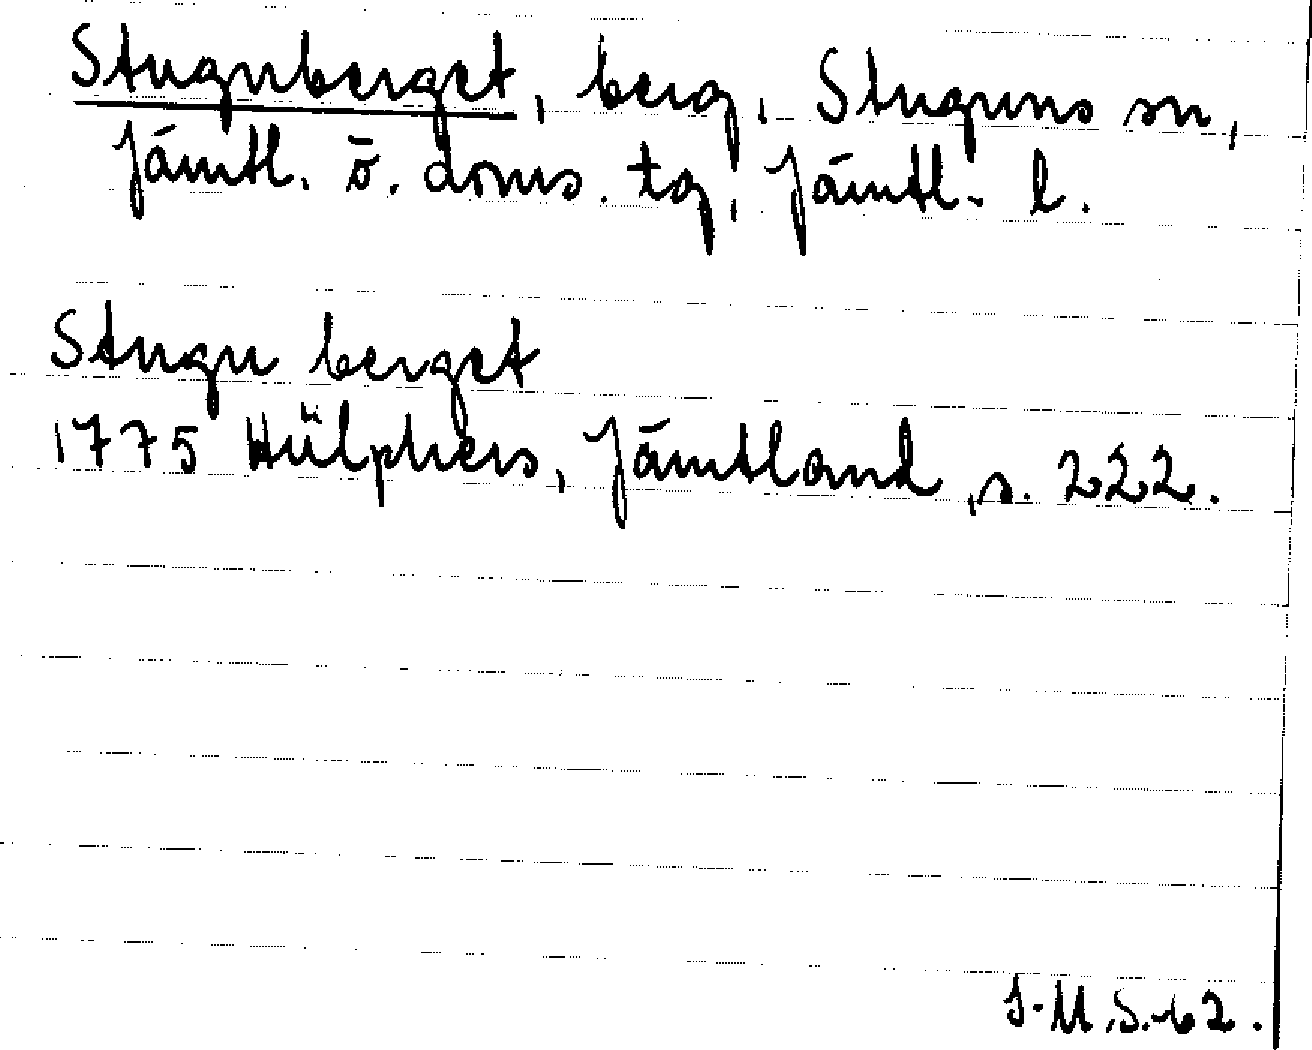 Stuguberget, berg, Stuguns sn,
Jämtl. ö. doms. tg, Jämtl. l.
Stugu berget
1775 Hülphers, Jämtland, s. 222.
I.M.S.62.